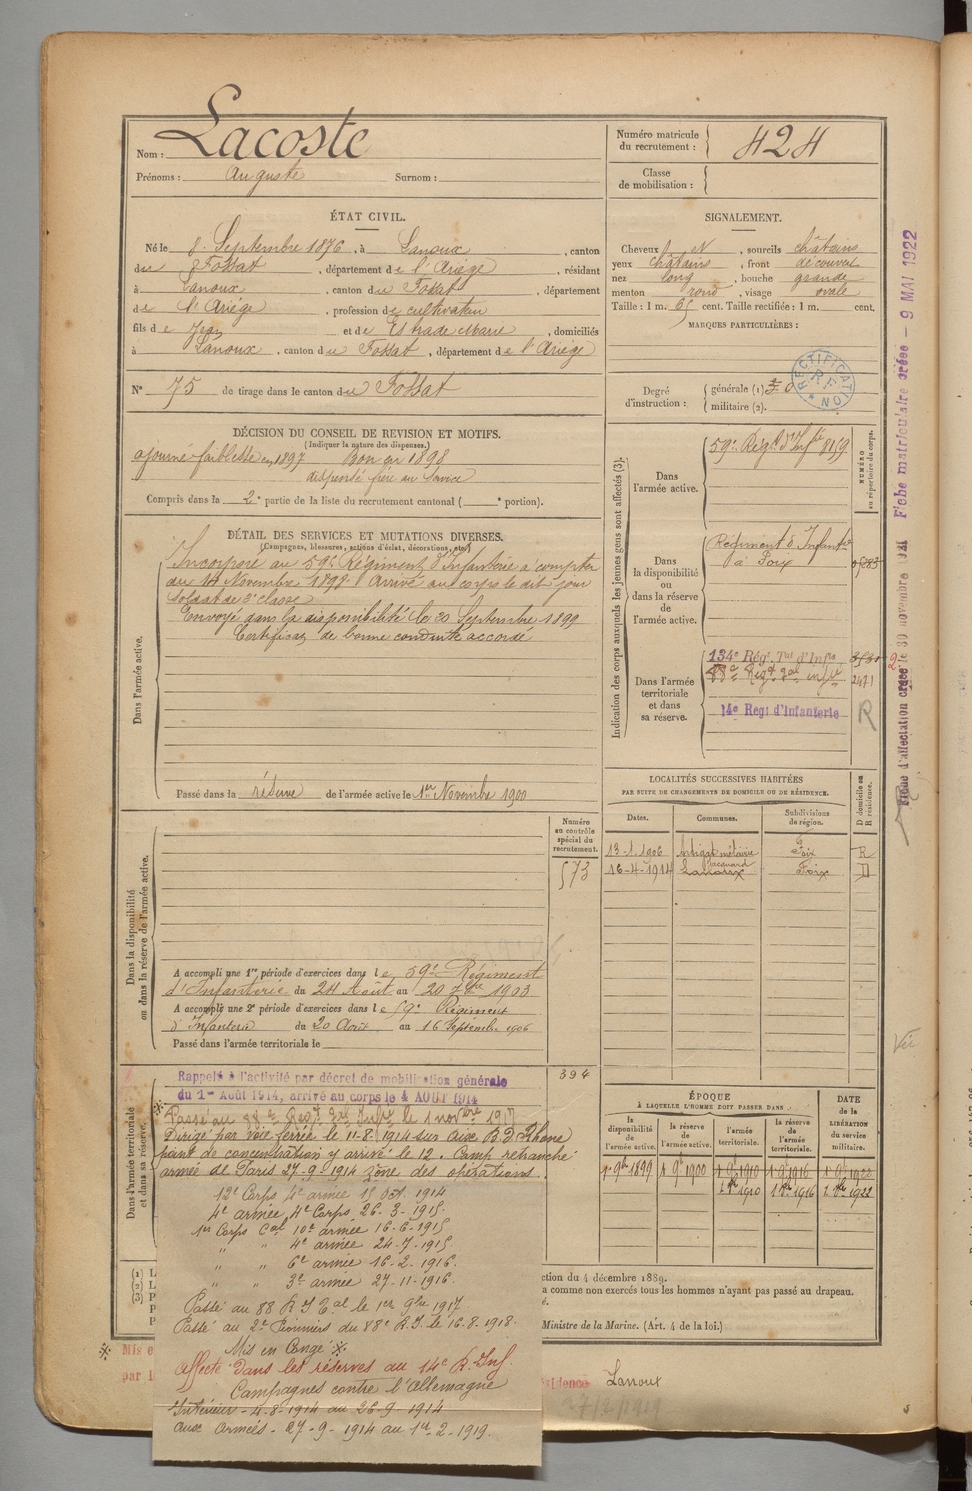 Nom : Lacoste
Prénoms : Auguste Surnom :
Numéro matricule du recrutement : 424
Classe de mobilisation :
ÉTAT CIVIL.
Né le 8 Septembre 1876, à Lanoux, canton
du Fossat, département de l'Ariège, résidant
à Lanoux, canton du Fossat, département
de l'Ariège, profession de cultivateur
fils de Jean et de Estrade Marie, domiciliés
à Lanoux, canton du Fossat, département de l'Ariège
N° 75 de tirage dans le canton du Fossat
SIGNALEMENT.
Cheveux et, sourcils châtains
yeux châtains, front découvert
nez long, bouche grande
menton rond, visage ovale
Taille : 1 m. 65 cent. Taille rectifiée : 1 m. cent.
MARQUES PARTICULIÈRES :
Degré d'instruction : générale (1)
militaire (2).
RECTIFICATION
R F
DÉCISION DU CONSEIL DE REVISION ET MOTIFS.
(Indiquer la nature des dispenses.)
ajourné faiblesse en 1897 Bon en 1898
dispensé frère au service
Compris dans la 2e partie de la liste du recrutement cantonal ( e portion).
DÉTAIL DES SERVICES ET MUTATIONS DIVERSES.
(Campagnes, blessures, actions d'éclat, décorations, etc.)
Dans l'armée active.
Incorporé au 59e Régiment d'Infanterie à compter
du 14 Novembre 1898 Arrivé au corps le dit jour
soldat de 2e classe
Envoyé dans la disponibilité le 20 Septembre 1899
Certificat de bonne conduite accordé
Passé dans la réserve de l'armée active le 1er Novembre 1900
Indication des corps auxquels les jeunes gens sont affectés (3).
NUMÉRO au répertoire du corps.
Dans l'armée active.
59e Régt d'Infie 8159
Dans la disponibilité ou dans la réserve de l'armée active.
Régiment d'Infanterie
à Foix
Dans l'armée territoriale et dans sa réserve.
134e Rég. Tal d'Infie
88e Régt Tal infie 2471
14e Regt d'Infanterie
R
Fiche matriculaire créée - 9 MAI 1922
Fiche d'affectation créée le 30 novembre 1921
LOCALITÉS SUCCESSIVES HABITÉES
PAR SUITE DE CHANGEMENTS DE DOMICILE OU DE RÉSIDENCE.
Dates. Communes. Subdivisions de région. D domicile ou R résidence.
13-1-1906 Artigat métairie Jacquard Foix R
16-4-1914 Lanoux Foix D
Numéro au contrôle spécial du recrutement.
573
Dans la disponibilité ou dans la réserve de l'armée active.
A accompli une 1re période d'exercices dans le 59e Régiment
d'Infanterie du 24 Août au 20 7bre 1903
A accompli une 2e période d'exercices dans le 59e Régiment
d'Infanterie du 20 Août au 16 Septembre 1906
Passé dans l'armée territoriale le
Dans l'armée territoriale et dans sa réserve.
394
Rappelé à l'activité par décret de mobilisation générale
du 1er Août 1914, arrivé au corps le 4 AOUT 1914
Passé au 88e Régt Tal Infie le 1 novbre 1917
Dirigé par voie ferrée le 11-8-1914 sur Aix B.D.Rhone
point de concentration y arrivé le 12. Camp retranché
armée de Paris 27-9-1914 zône des opérations.
12e Corps 4e armée 15 Oct. 1914
4e armée, 4e Corps 26-3-1915.
1er Corps Cal 10e armée 16-6-1915
" " 4e armée 24-7-1915
" " 6e armée 16-2-1916.
" " 3e armée 27-11-1916.
Passé au 88 R I Tal le 1er 9bre 1917
Passé au 2e Pionniers du 88e R.I. le 16-8-1918.
Mis en Congé
Affecté dans les réserves au 14e R. Inf.
Campagnes contre l'Allemagne
Intérieur - 4-8-1914 au 26-9 1914
aux Armées - 27-9-1914 au 1er-2-1919.
ÉPOQUE
À LAQUELLE L'HOMME DOIT PASSER DANS :
la disponibilité de l'armée active. la réserve de l'armée active. l'armée territoriale. la réserve de l'armée territoriale. DATE de la LIBÉRATION du service militaire.
1er 9bre 1899 1er 9bre 1900 1er 9bre 1910 1er 9bre 1916 1er 9bre 1922
Vu
(1) L
(2) L
(3) P
P
P
ction du 4 décembre 1889.
a comme non exercés tous les hommes n'ayant pas passé au drapeau.
é.
Ministre de la Marine. (Art. 4 de la loi.)
Mis e
par l
sidence Lanoux
27/2/1919